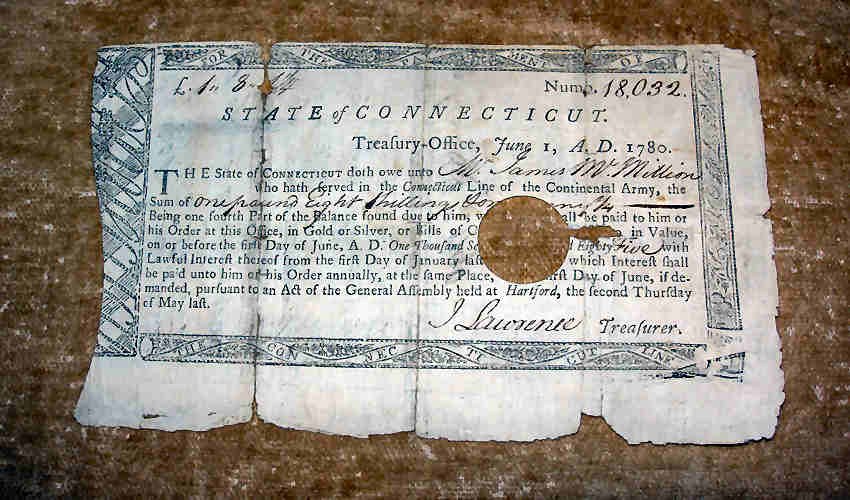 FOR THE PAYMENT OF
£. 1 „ 8
Numb. 18,032.
STATE of CONNECTICUT.
Treasury-Office, June 1, A. D. 1780.
THE State of CONNECTICUT doth owe unto Mr. James McMillion
who hath served in the Connecticut Line of the Continental Army, the
Sum of one pound Eight Shillings
Being one fourth Part of the Balance found due to him, be paid to him or
his Order at this Office, in Gold or Silver, or Bills of in Value,
on or before the first Day of June, A. D. One Thousand Eighty Five with
Lawful Interest thereof from the first Day of January last which Interest shall
be paid unto him or his Order annually, at the same Place, Day of June, if de-
manded, pursuant to an Act of the General Assembly held at Hartford, the second Thursday
of May last.
J Lawrence Treasurer.
THE CONNECTICUT LINE